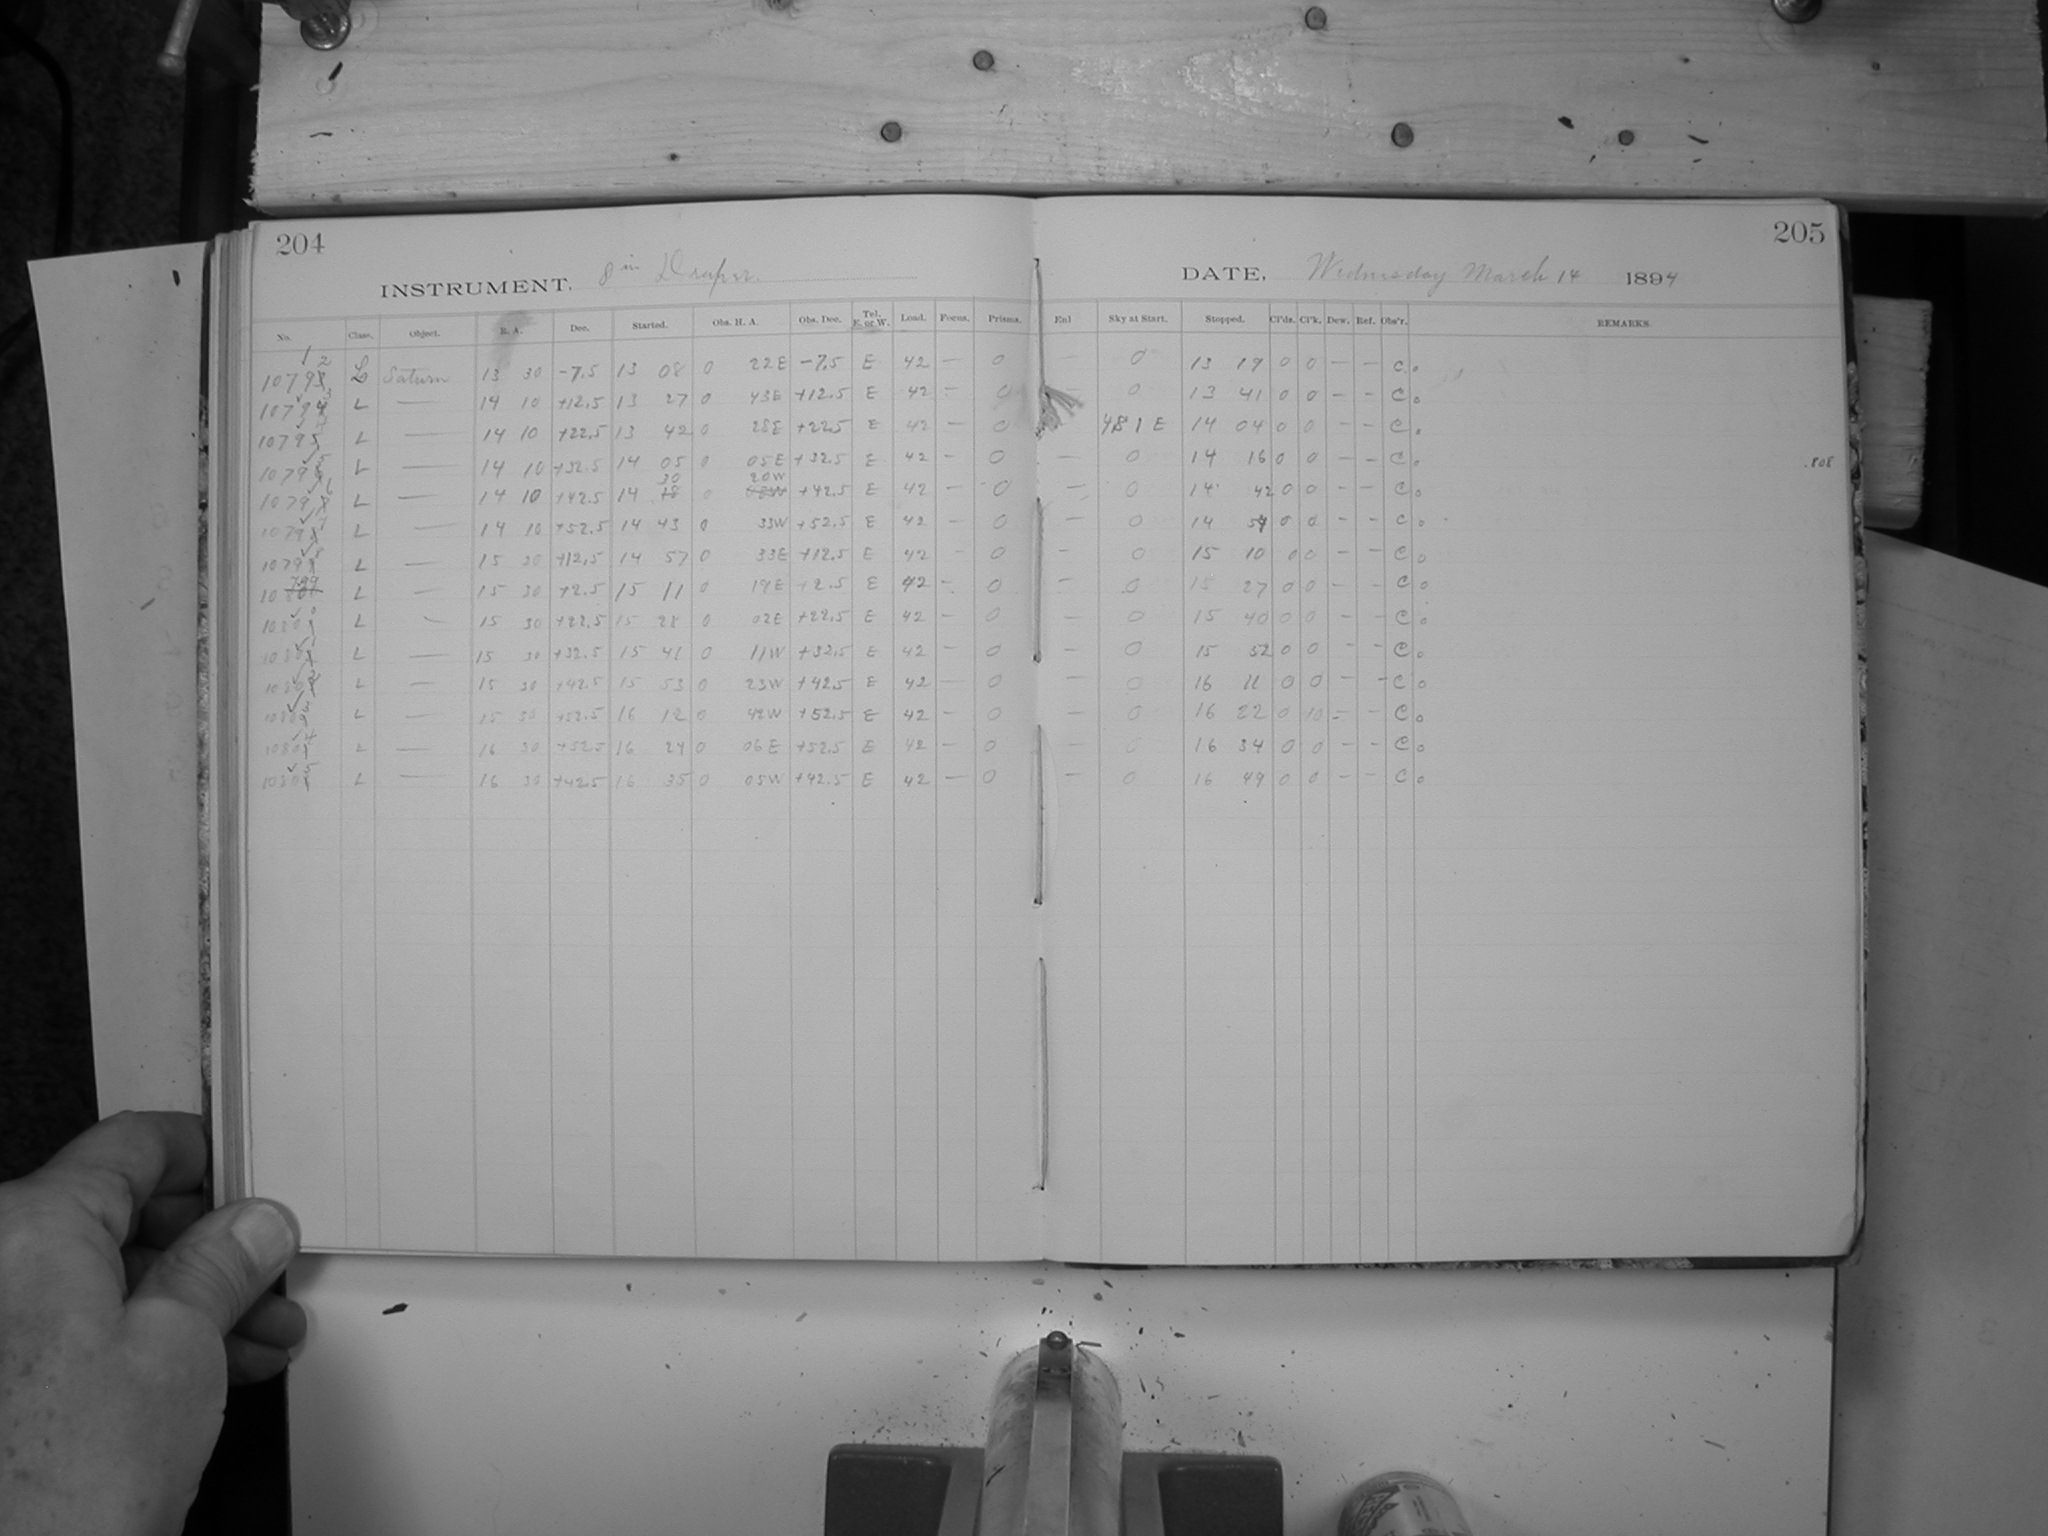 204
205
INSTRUMENT. 8 in Draper.
DATE, Wednesday March 14 1894
No. Class. Object. R. A. Dec. Started. Obs. H. A. Obs. Dec. Tel. E. or W. Load. Focus. Prisms. Enl Sky at Start. Stopped. Cl'ds. Cl'k. Dew. Ref. Obs'r. REMARKS.
L Saturn 13 30 -7.5 13 08 0 22E -7.5 E 42 — 0 — 0 13 19 0 0 — — C.
L — 14 10 +12.5 13 27 0 43E +12.5 E 42 — 0 — 0 13 41 0 0 — — C.
L — 14 10 +22.5 13 42 0 28E +22.5 E 42 — 0 481E 14 04 0 0 — — C.
L — 14 10 +32.5 14 05 0 05E +32.5 E 42 — 0 — 0 14 16 0 0 — — C.
L — 14 10 +42.5 14 30 0 20W +42.5 E 42 — 0 — 0 14 42 0 0 — — C.
L — 14 10 +52.5 14 43 0 33W +52.5 E 42 — 0 — 0 14 0 0 — — C.
L — 15 30 +12.5 14 57 0 33E +12.5 E 42 — 0 — 0 15 10 0 0 — — C.
L — 15 30 +2.5 15 11 0 19E +2.5 E 42 — 0 — 0 15 27 0 0 — — C.
L — 15 30 +22.5 15 28 0 02E +22.5 E 42 — 0 — 0 15 40 0 0 — — C.
L — 15 30 +32.5 15 41 0 11W +32.5 E 42 — 0 — 0 15 52 0 0 — — C.
L — 15 30 +42.5 15 53 0 23W +42.5 E 42 — 0 — 0 16 11 0 0 — — C.
L — 15 30 +52.5 16 12 0 42W +52.5 E 42 — 0 — 0 16 22 0 10 — — C.
L — 16 30 +52.5 16 24 0 06E +52.5 E 42 — 0 — 0 16 34 0 0 — — C.
L — 16 30 +42.5 16 35 0 05W +42.5 E 42 — 0 — 0 16 49 0 0 — — C.